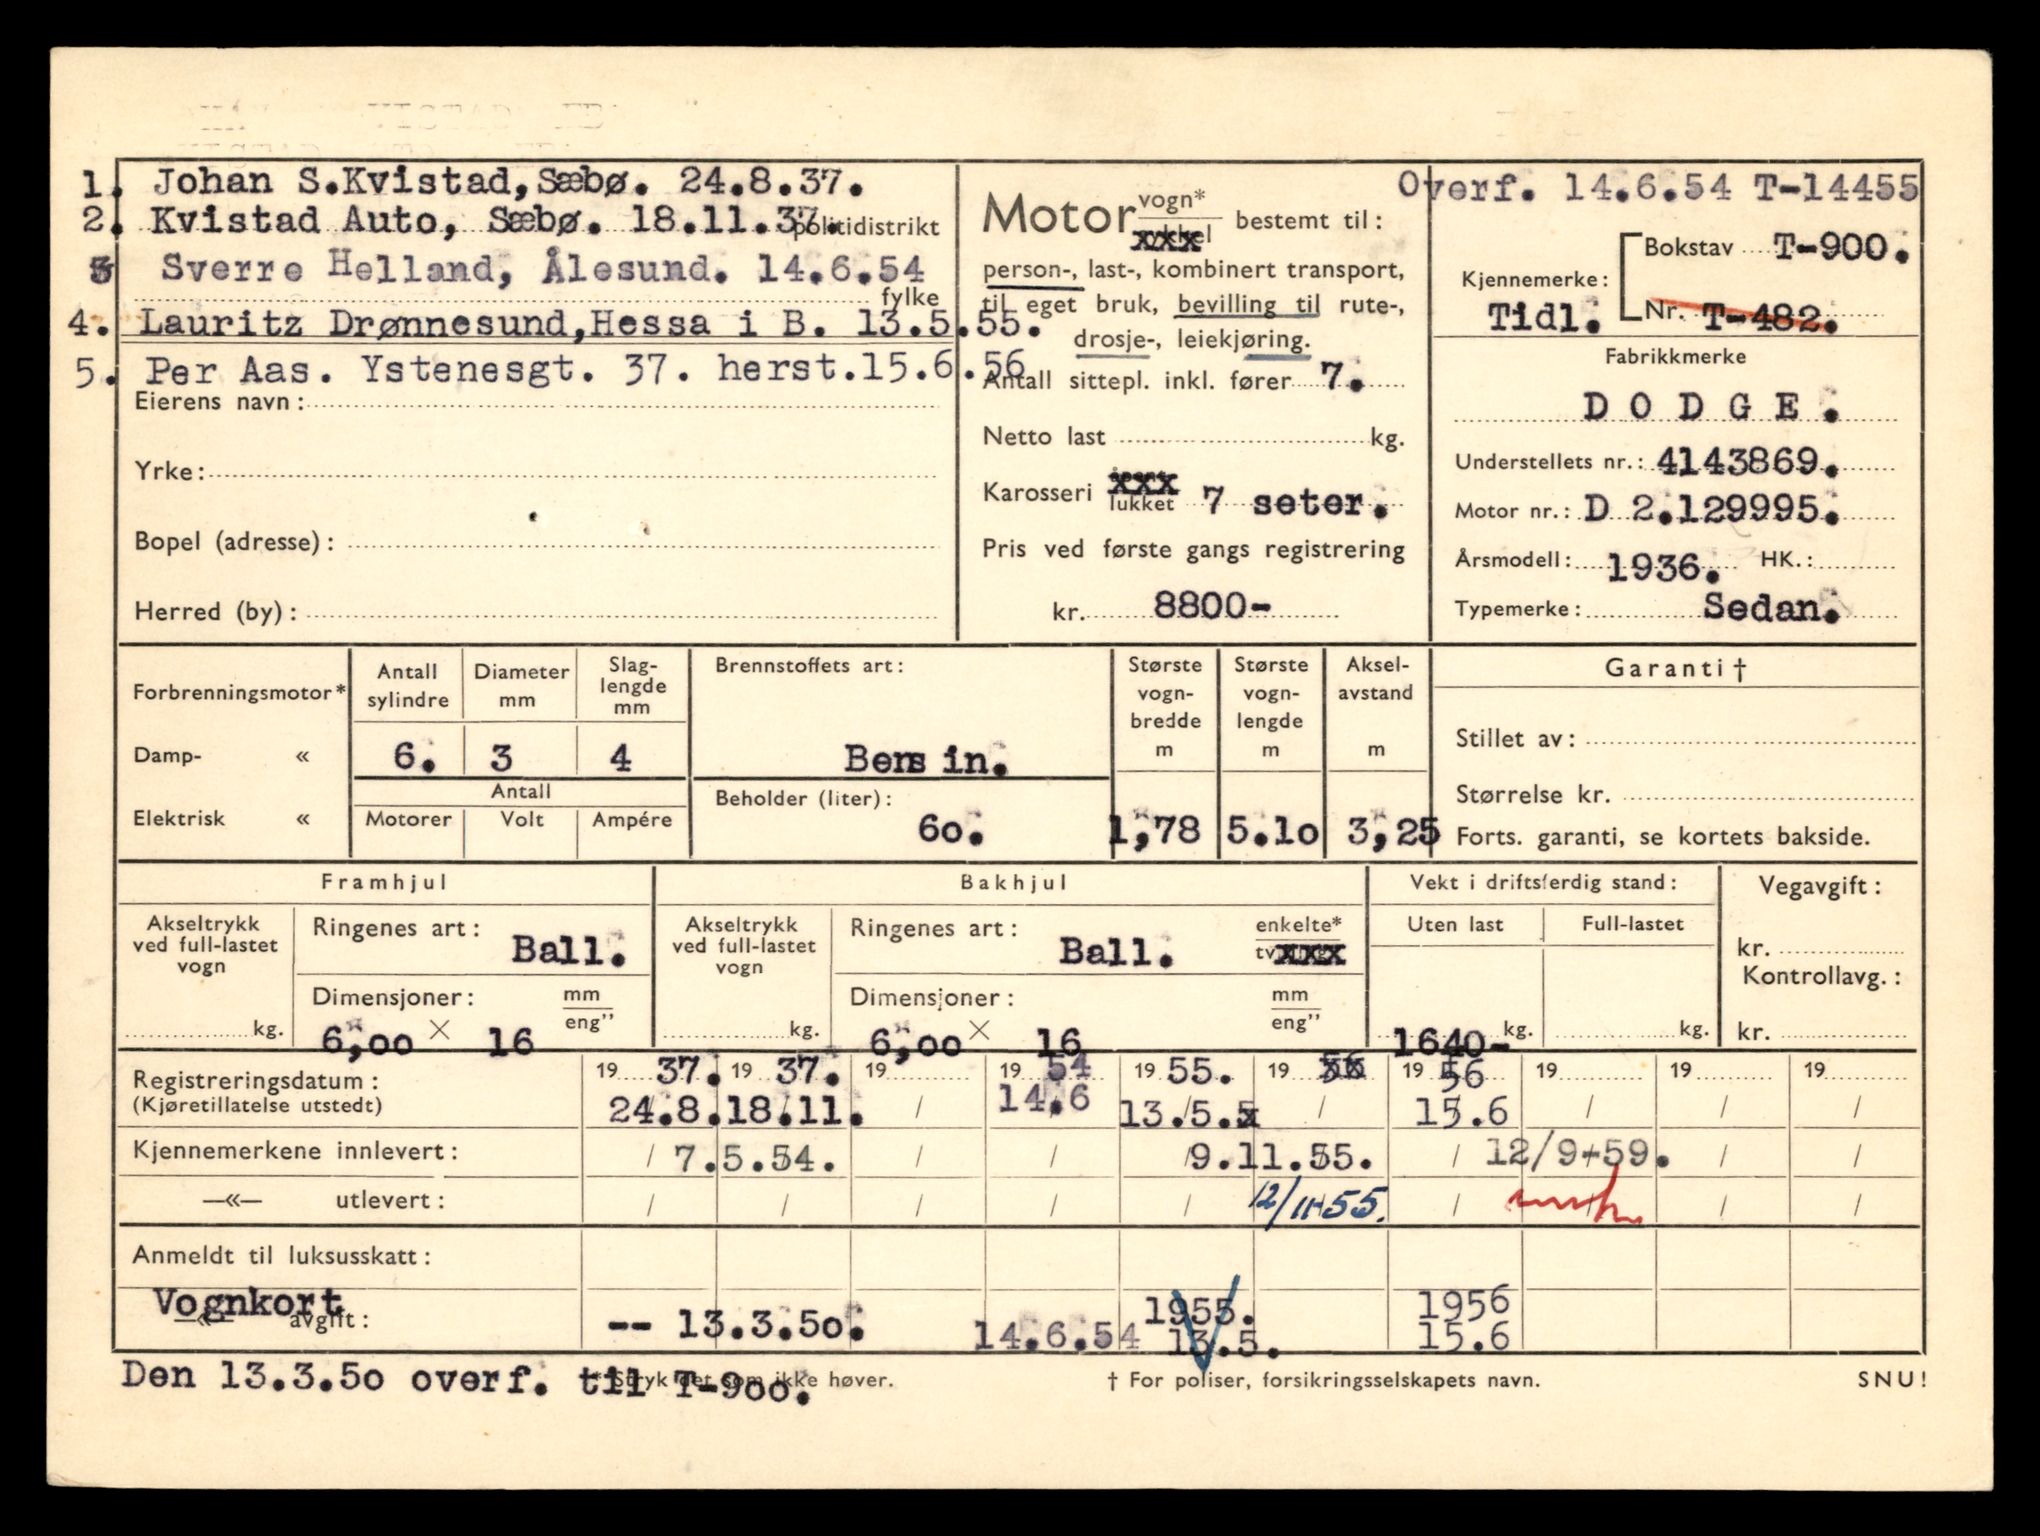 1. Johan S.Kvistad,Sæbø. 24.8.37.
2. Kvistad Auto, Sæbø. 18.11.37. politidistrikt
3 Sverre Helland, Ålesund. 14.6.54
fylke
4. Lauritz Drønnesund,Hessa i B. 13.5.55.
5. Per Aas. Ystenesgt. 37. herst.15.6.56
Eierens navn:
Yrke:
Bopel (adresse):
Herred (by):
Motor vogn* xxx bestemt til:
person-, last-, kombinert transport,
til eget bruk, bevilling til rute-,
drosje-, leiekjøring.
Antall sittepl. inkl. fører 7.
Netto last kg.
Karosseri xxx lukket 7 seter.
Pris ved første gangs registrering
kr. 8800-
Overf. 14.6.54 T-14455
Kjennemerke: Bokstav T-900.
Tidl. Nr. T-482.
Fabrikkmerke
DODGE.
Understellets nr.: 4143869.
Motor nr.: D 2.129995.
Årsmodell: 1936. HK.:
Typemerke: Sedan.
Forbrenningsmotor*
Damp- «
Elektrisk «
Antall sylindre
Diameter mm
Slag-lengde mm
6. 3 4
Antall
Motorer Volt Ampére
Brennstoffets art:
Bensin.
Beholder (liter):
60.
Største vogn-bredde m
Største vogn-lengde m
Aksel-avstand m
1,78 5.10 3,25
Garanti †
Stillet av:
Størrelse kr.
Forts. garanti, se kortets bakside.
Framhjul
Akseltrykk
ved full-lastet
vogn
kg.
Ringenes art:
Ball.
Dimensjoner: mm
eng"
6,00 × 16
Bakhjul
Akseltrykk
ved full-lastet
vogn
kg.
Ringenes art: enkelte*
Ball. xxx
Dimensjoner: mm
eng"
6,00 × 16
Vekt i driftsferdig stand:
Uten last Full-lastet
1640- kg. kg.
Vegavgift:
kr.
Kontrollavg.:
kr.
Registreringsdatum: 19 37. 19 37. 19 19 54 19 55. 19 xx 19 56 19 19 19
(Kjøretillatelse utstedt) 24.8. 18.11. / 14.6 13.5.x / 15.6 / / /
Kjennemerkene innlevert: / 7.5.54. / / 9.11.55. / 12/9-59. / /
—«— utlevert: / / / / / 12/11-55. / / /
Anmeldt til luksusskatt:
Vognkort
—«— avgift: -- 13.3.50. 14.6.54 1955. 13.5. 1956 15.6
Den 13.3.50 overf. til T-900.
* Stryk det som ikke høver.
† For poliser, forsikringsselskapets navn.
SNU!